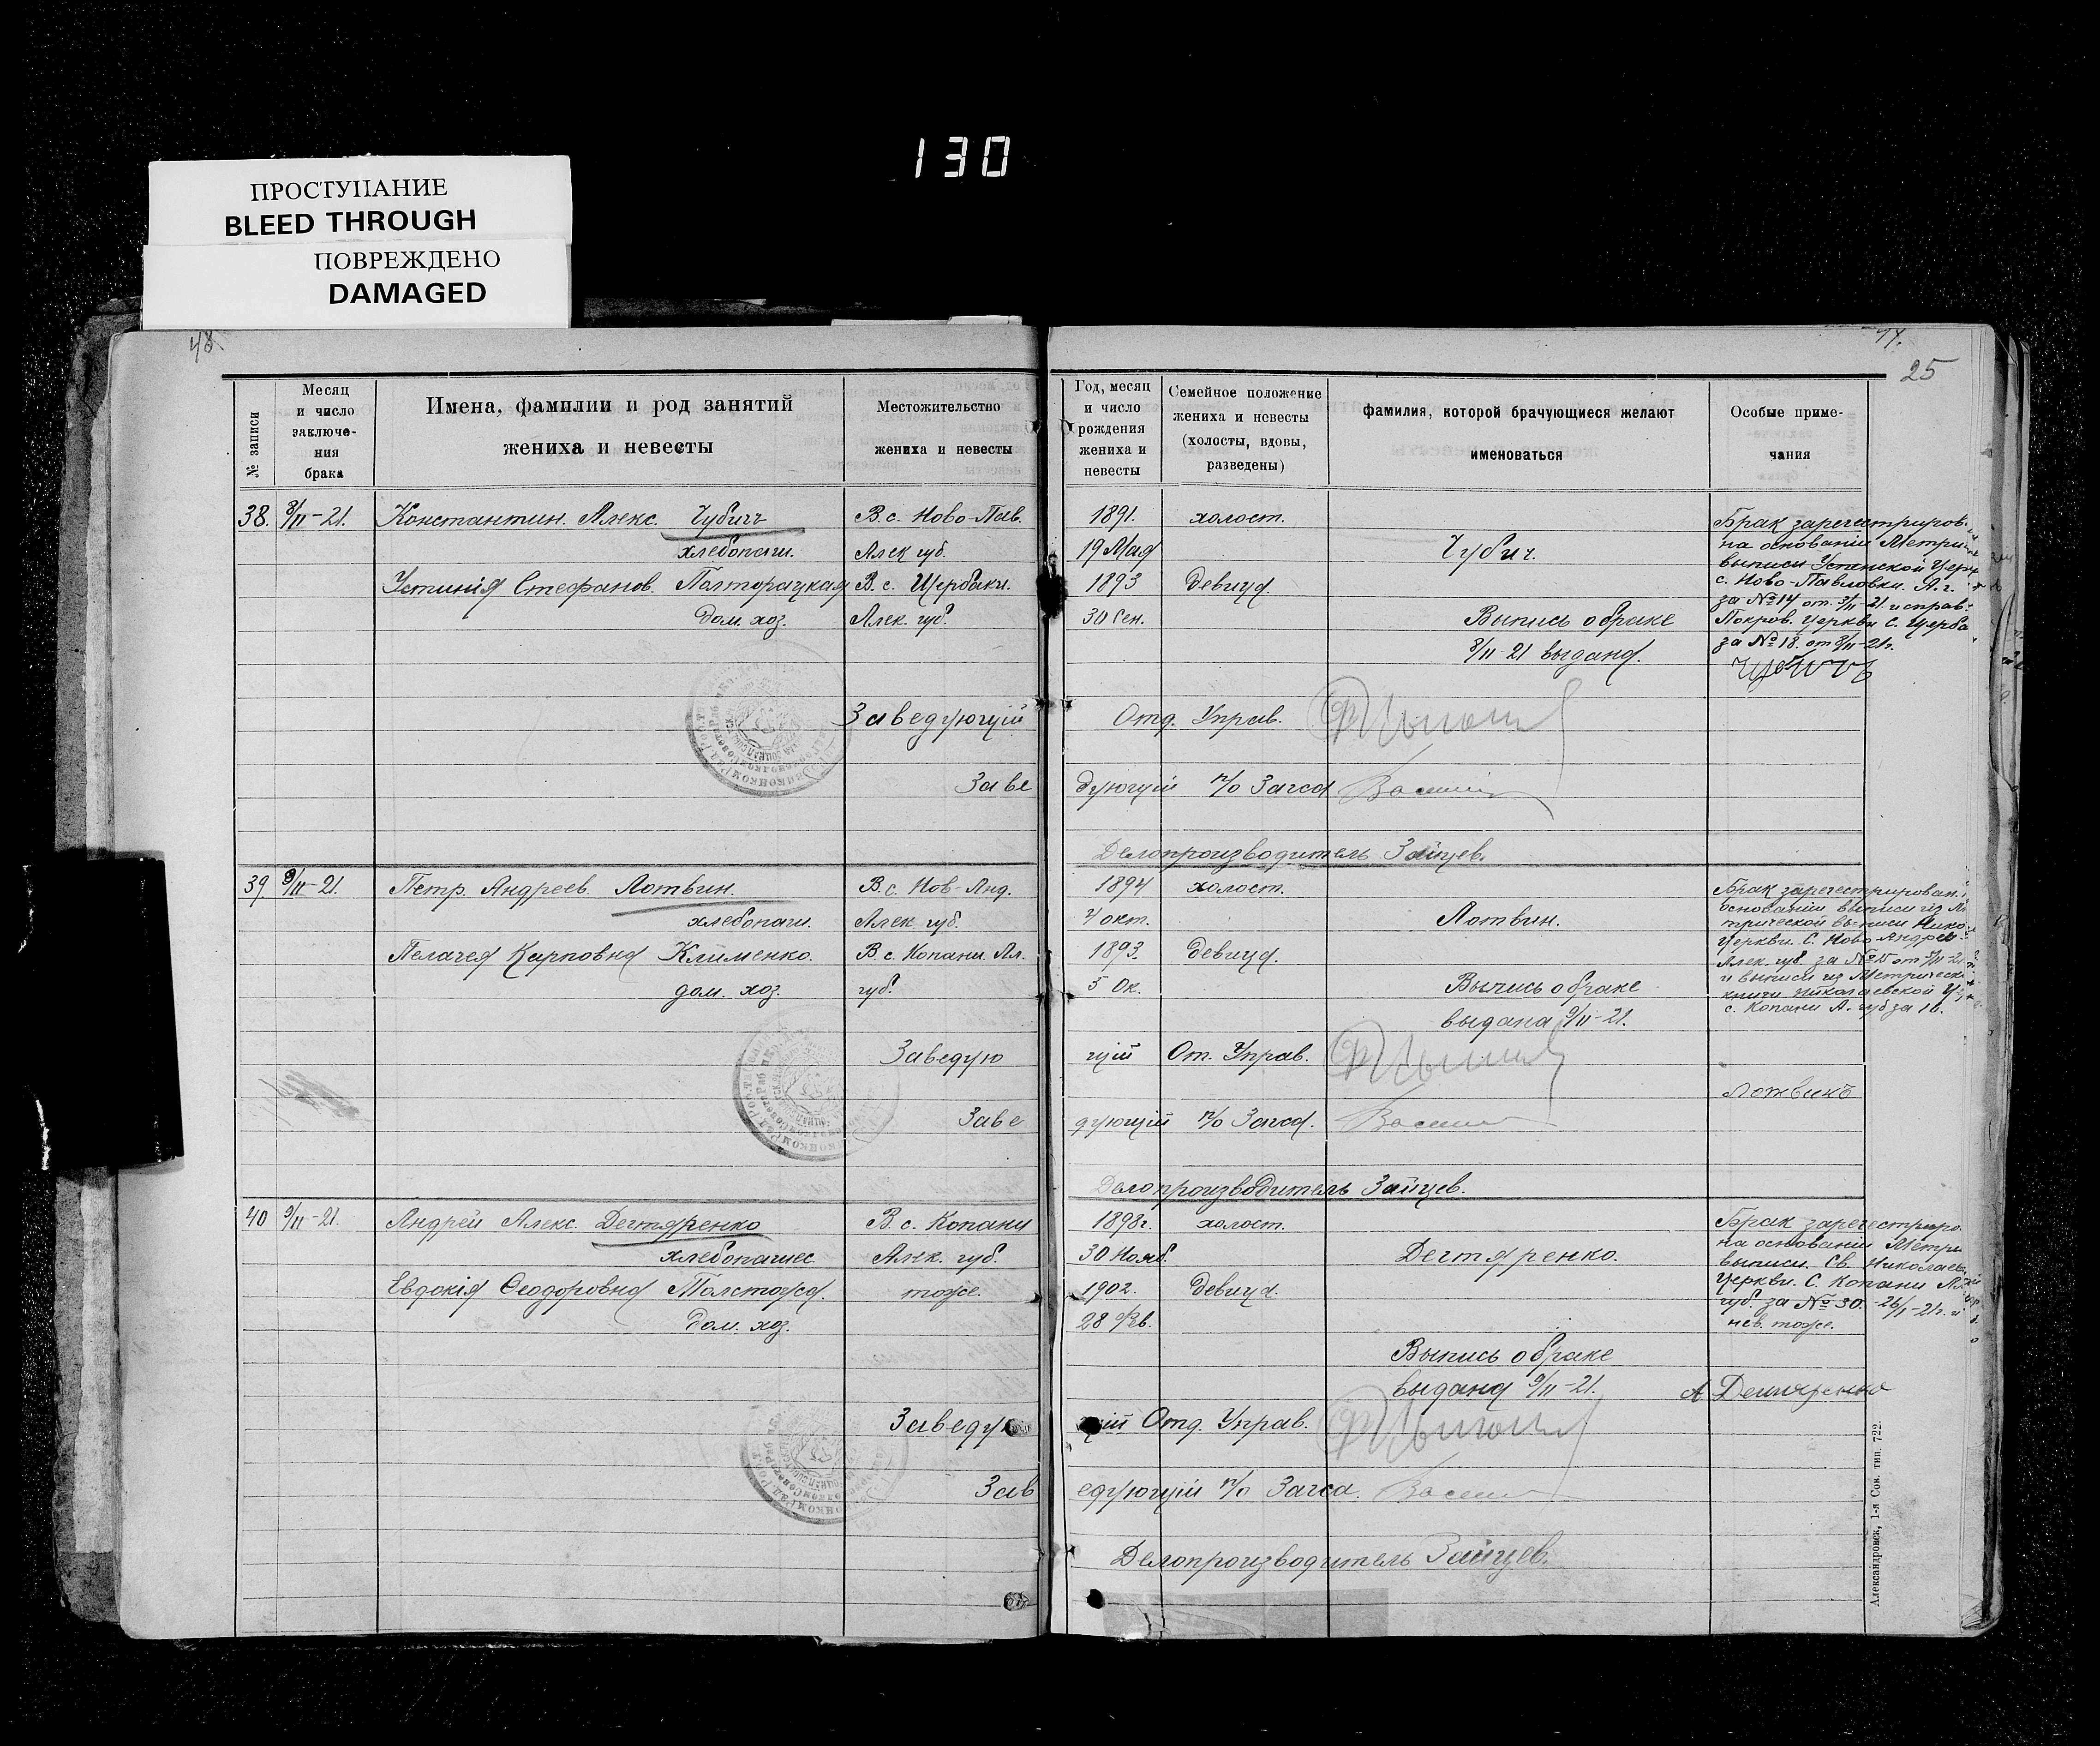 130
ПРОСТУПАНИЕ
BLEED THROUGH
ПОВРЕЖДЕНО
DAMAGED
48.
25
№ записи
Месяц и число заключе-ния брака
Имена, фамилии и род занятий жениха и невесты
Местожительство жениха и невесты
Год, месяц и число рождения жениха и невесты
Семейное положение жениха и невесты (холосты, вдовы, разведены)
фамилия, которой брачующиеся желают именоваться
Особые приме-чания
38. 8/II-21. Константин. Алекс. Чубичъ В.с. Ново-Пав. 1891. холост.
хлебопаш. Алек губ. 19 Мая Чубич.
Устинія Стефанов. Полторацкая В.с. Щербаки. 1893 девица.
дом. хоз. Алек. губ. 30 Сен. Выпись о браке
8/II-21 выдана.
Брак зарегестриров.
на основаніи Метри
выписи Успенской Церк
с. Ново-Павловки. А.г.
за №14 от. 8/II-21. и справ.
Покров. Церкви с. Щерба
за №18. от 8/II-21г.
Чубичъ
Заведующій Отд. Управ.
Заведующій п/о Загса
Делопроизводитель Зайцев.
39. 8/II-21. Петр. Андреев. Лотвин. В.с. Нов-Анд. 1894 холост.
хлебопаш. Алек. губ. 4 окт. Лотвин.
Пелагея Карповна Клименко. В.с. Копани. Ал. 1893. девица.
дом. хоз. губ. 5 Ок. Выпись о браке
выдана 9/II-21.
Брак зарегестрирован.
основаніи выписи из М
трической выписи Нико
Церкви. С. Ново Андре
Алек. губ. за №15 от /II-21
и выписи из Метрическ
книги Николаевской Ц
с. Копани А. губ за 16.
Заведующій От. Управ.
Лотвинъ
Заведующій п/о Загса.
Делопроизводитель Зайцев.
40 9/II-21. Андрей Алекс. Дегтяренко В.с. Копани 1898г. холост.
хлебопашес Алек. губ. 30 Нояб. Дегтяренко.
Евдокія Феодоровна Толстая. тоже. 1902. девица.
дом. хоз. 28 Фев.
Выпись о браке
выдана 9/II-21.
Брак зарегестриро
на основаніи Метри
выписи. Св. Николаев
Церкви. С. Копани Ал
губ. за №30. -26/I-21г. и
нев. тоже.
А Дегтяренко
Заведующій Отд. Управ.
Заведующій п/о Загса.
Делопроизводитель Зайцев.
Александровск, 1-я Сов. тип. 722.